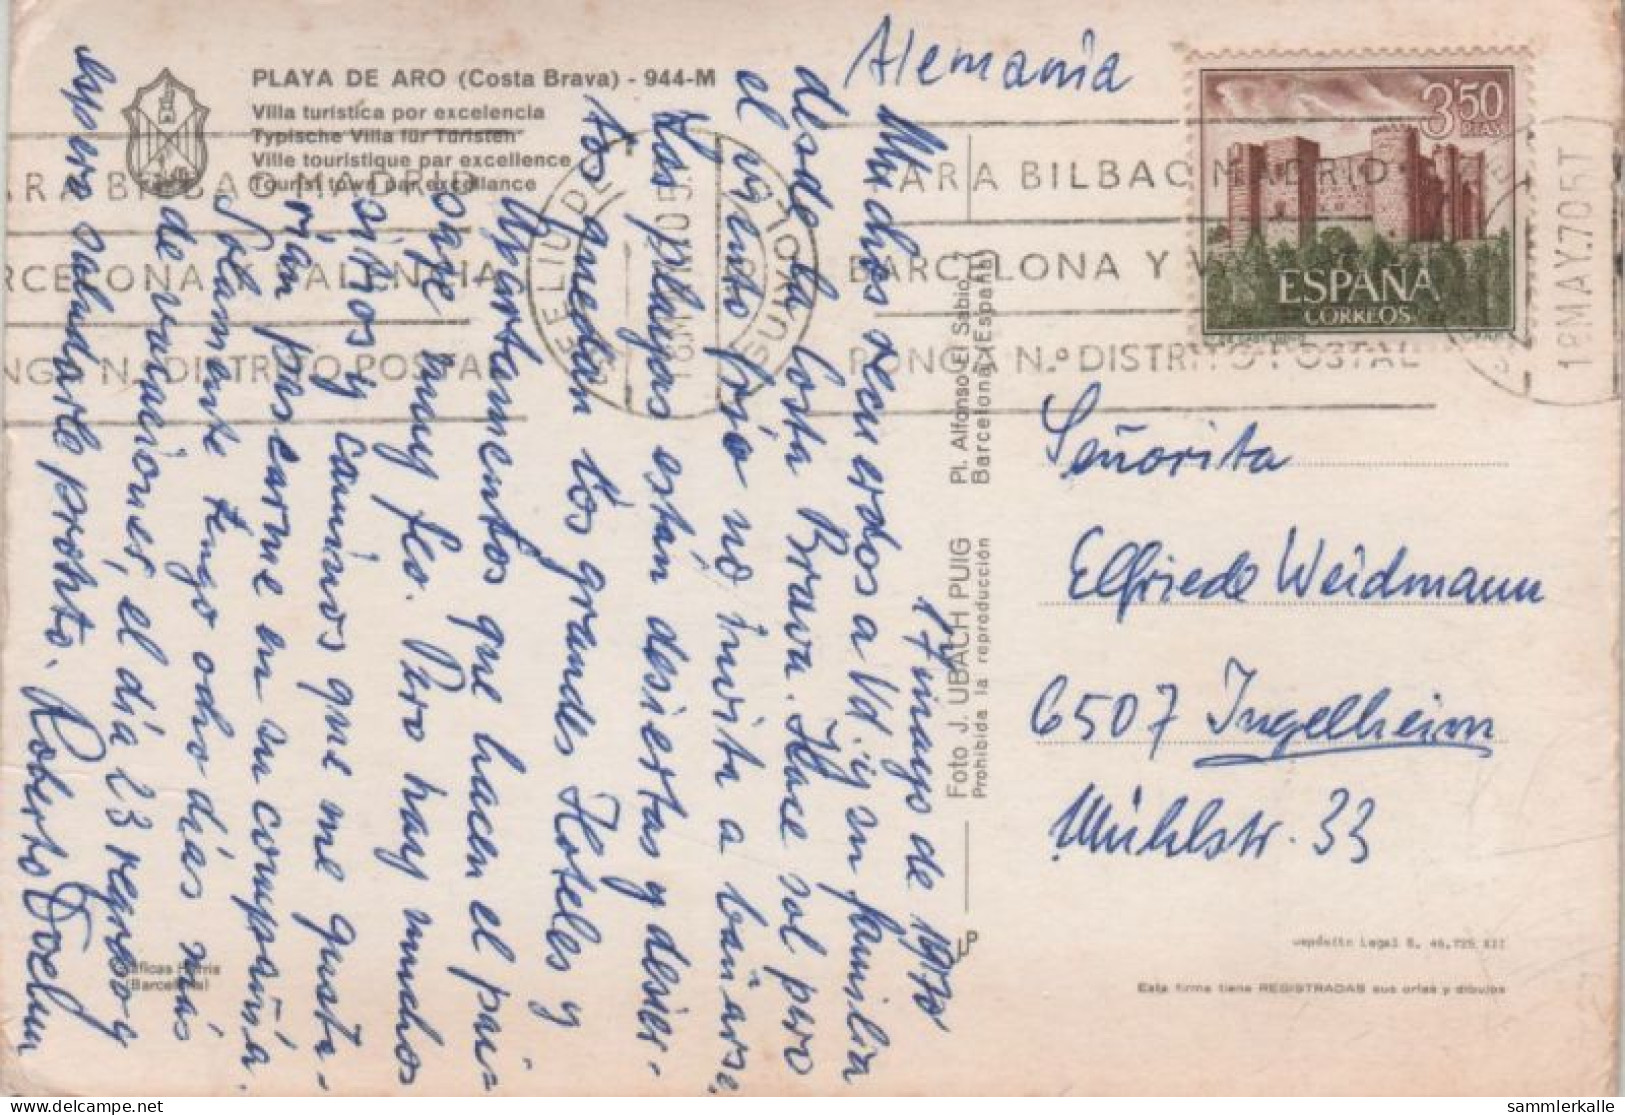 PLAYA DE ARO (Costa Brava) - 944-M
Villa turística por excelencia
Typische Villa für Türisten
Ville touristique par excellence
Tourist town par excellance
Alemania
17 mayo de 1970
Muchos recuerdos a Vd. y su familia
desde la Costa Brava. Hace sol pero
el viento frío no invita a bañarse,
Las playas están desiertas y desier-
tos quedan los grandes Hoteles y
Apartamentos que hacen el pai-
saje muy feo. Pero hay muchos
sitios y caminos que me gusta-
rían pasearme en su compañía.
Solamente tengo ocho días más
de vacaciones, el día 23 regreso y
espero saludarle pronto. Roberto
3'50
PTAS
ESPAÑA
CORREOS
PARA BILBAO MADRID
BARCELONA Y VALENCIA
PONGA N.º DISTRITO POSTAL
18 MAY.70 5T
Señorita
Elfriede Weidmann
6507 Ingelheim
Mühlstr. 33
Foto J. UBACH PUIG
Prohibida la reproducción
Pl. Alfonso El Sabio,
Barcelona (España)
LP
Depósito Legal B. 46.725 XII
Esta firma tiene REGISTRADAS sus orlas y dibujos
(Barcelona)
sammlerkalle